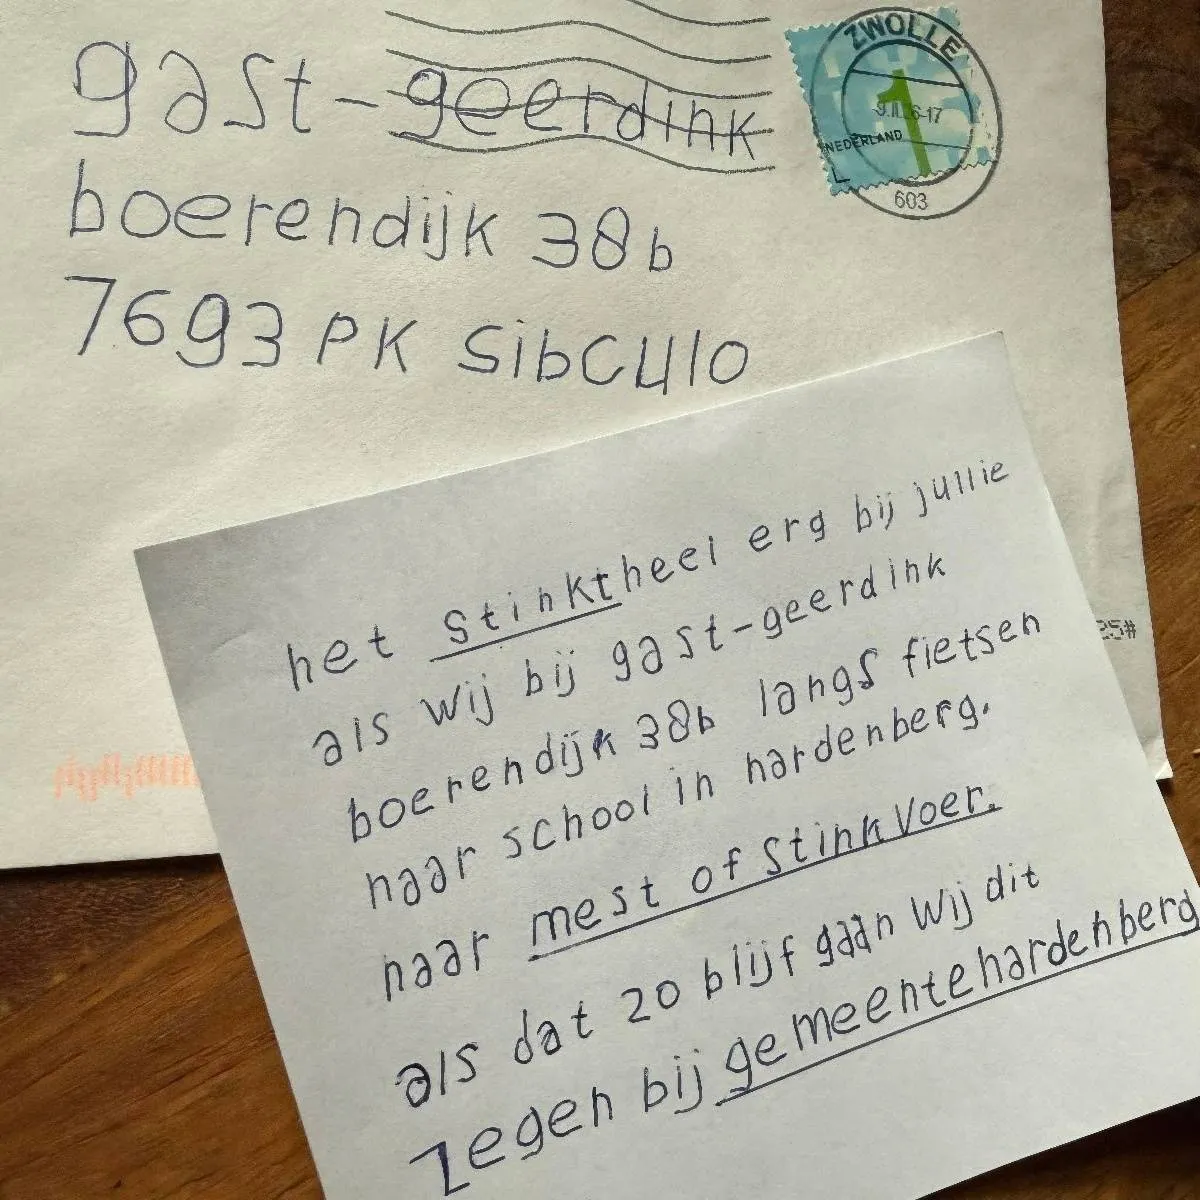 gast-geerdink
boerendijk 38b
7693 PK SibCulo
ZWOLLE
6-17
NEDERLAND
1
L
603
25#
het Stinktheel erg bij jullie
als wij bij gast-geerdink
boerendijk 38b langs fietsen
naar school in hardenberg.
naar mest of Stink Voer.
als dat 20 blijf gaan wij dit
zegen bij gemeentehardenberg